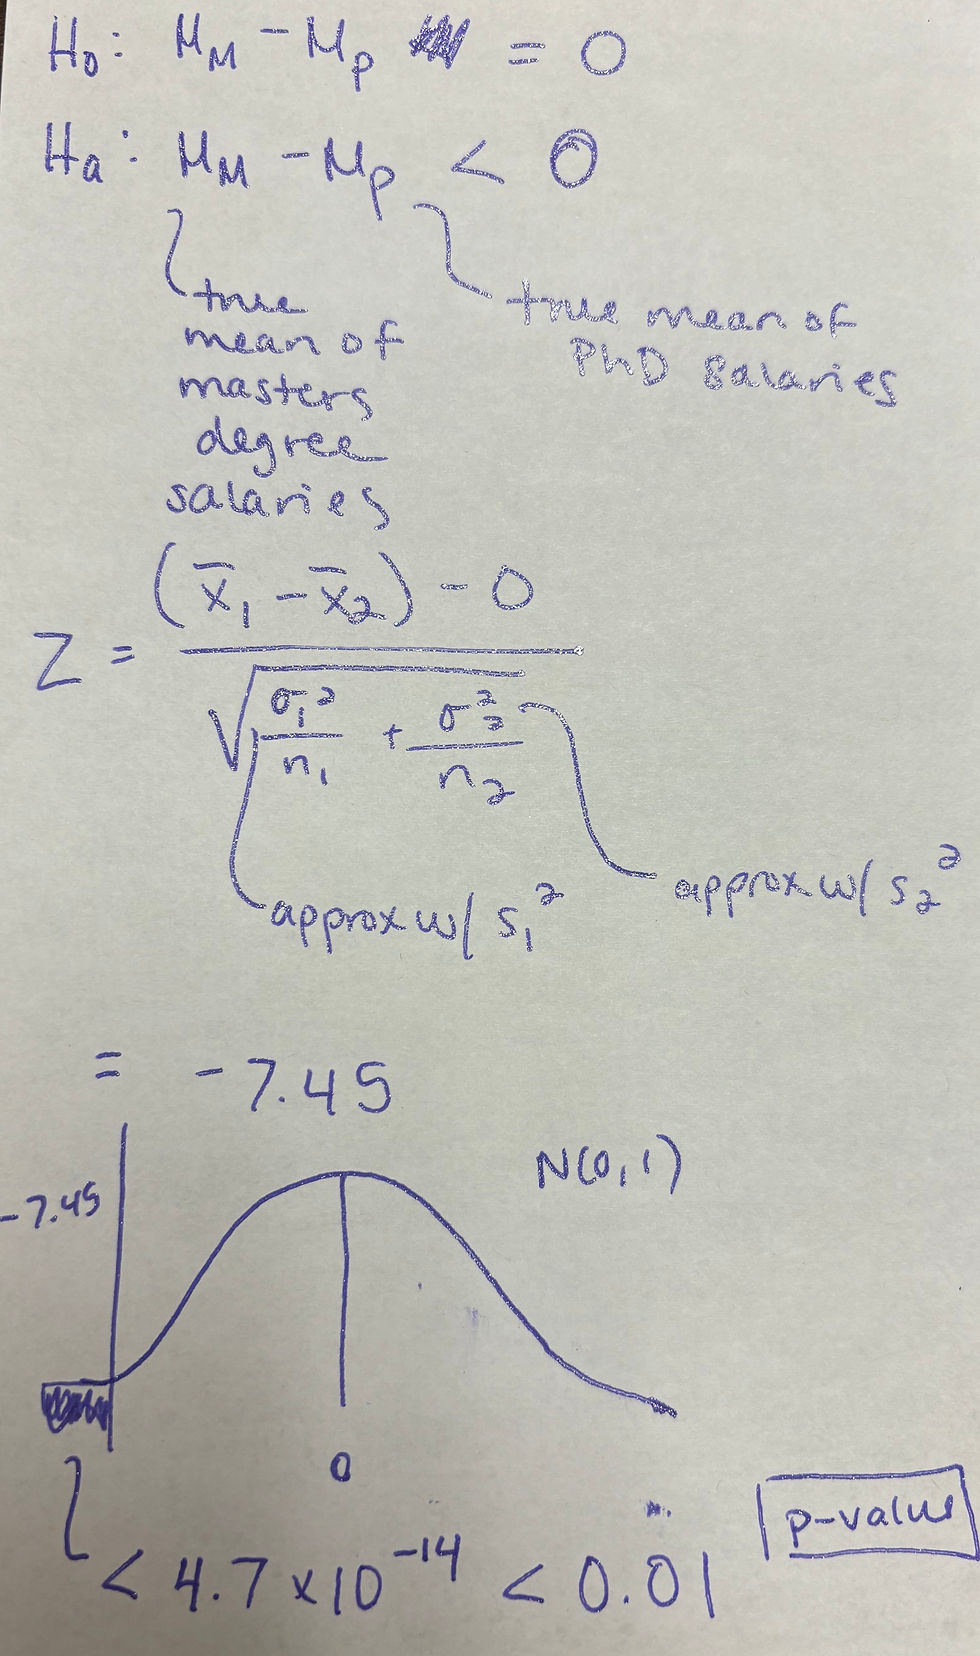 H₀: μ_M − μ_P = 0
Hₐ: μ_M − μ_P < 0
true mean of masters degree salaries
true mean of PhD salaries
(x̄₁ − x̄₂) − 0
Z =
√ σ₁²/n₁ + σ₂²/n₂
approx w/ s₁²
approx w/ s₂²
= −7.45
N(0,1)
−7.45
0
p-value
< 4.7 × 10⁻¹⁴ < 0.01